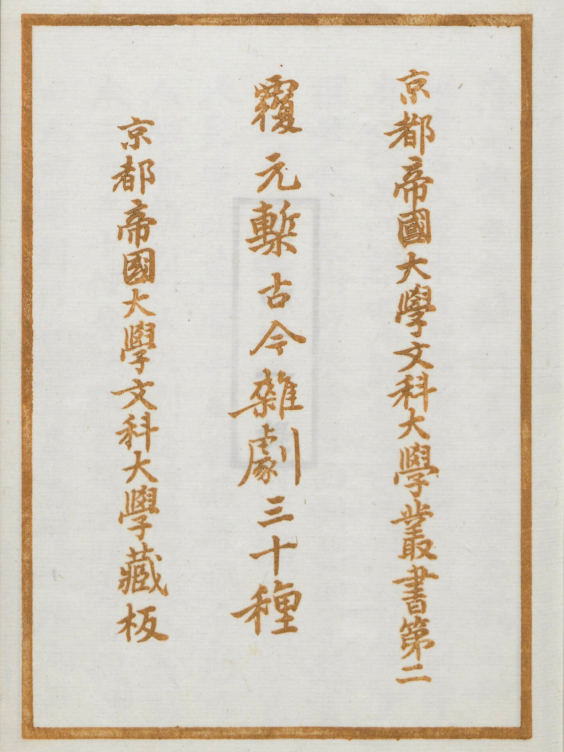 京都帝國大學文科大學叢書第二
覆元槧古今雜劇三十種
京都帝國大學文科大學藏板